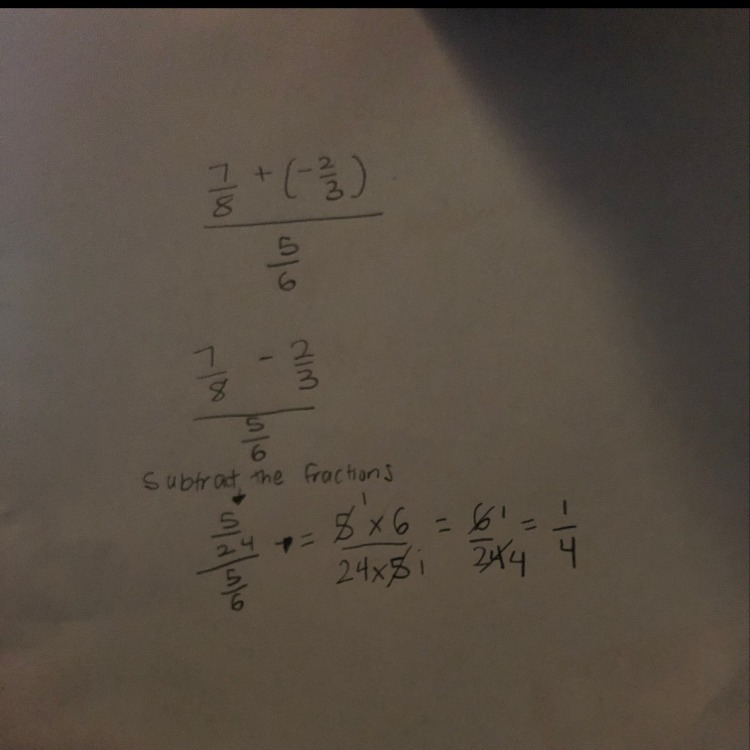 7/8 + (-2/3)
5/6
7/8 - 2/3
5/6
Subtract the fractions
5/24 / 5/6 = 5 1 × 6 / 24 × 5 1 = 6 1 / 24 4 = 1/4